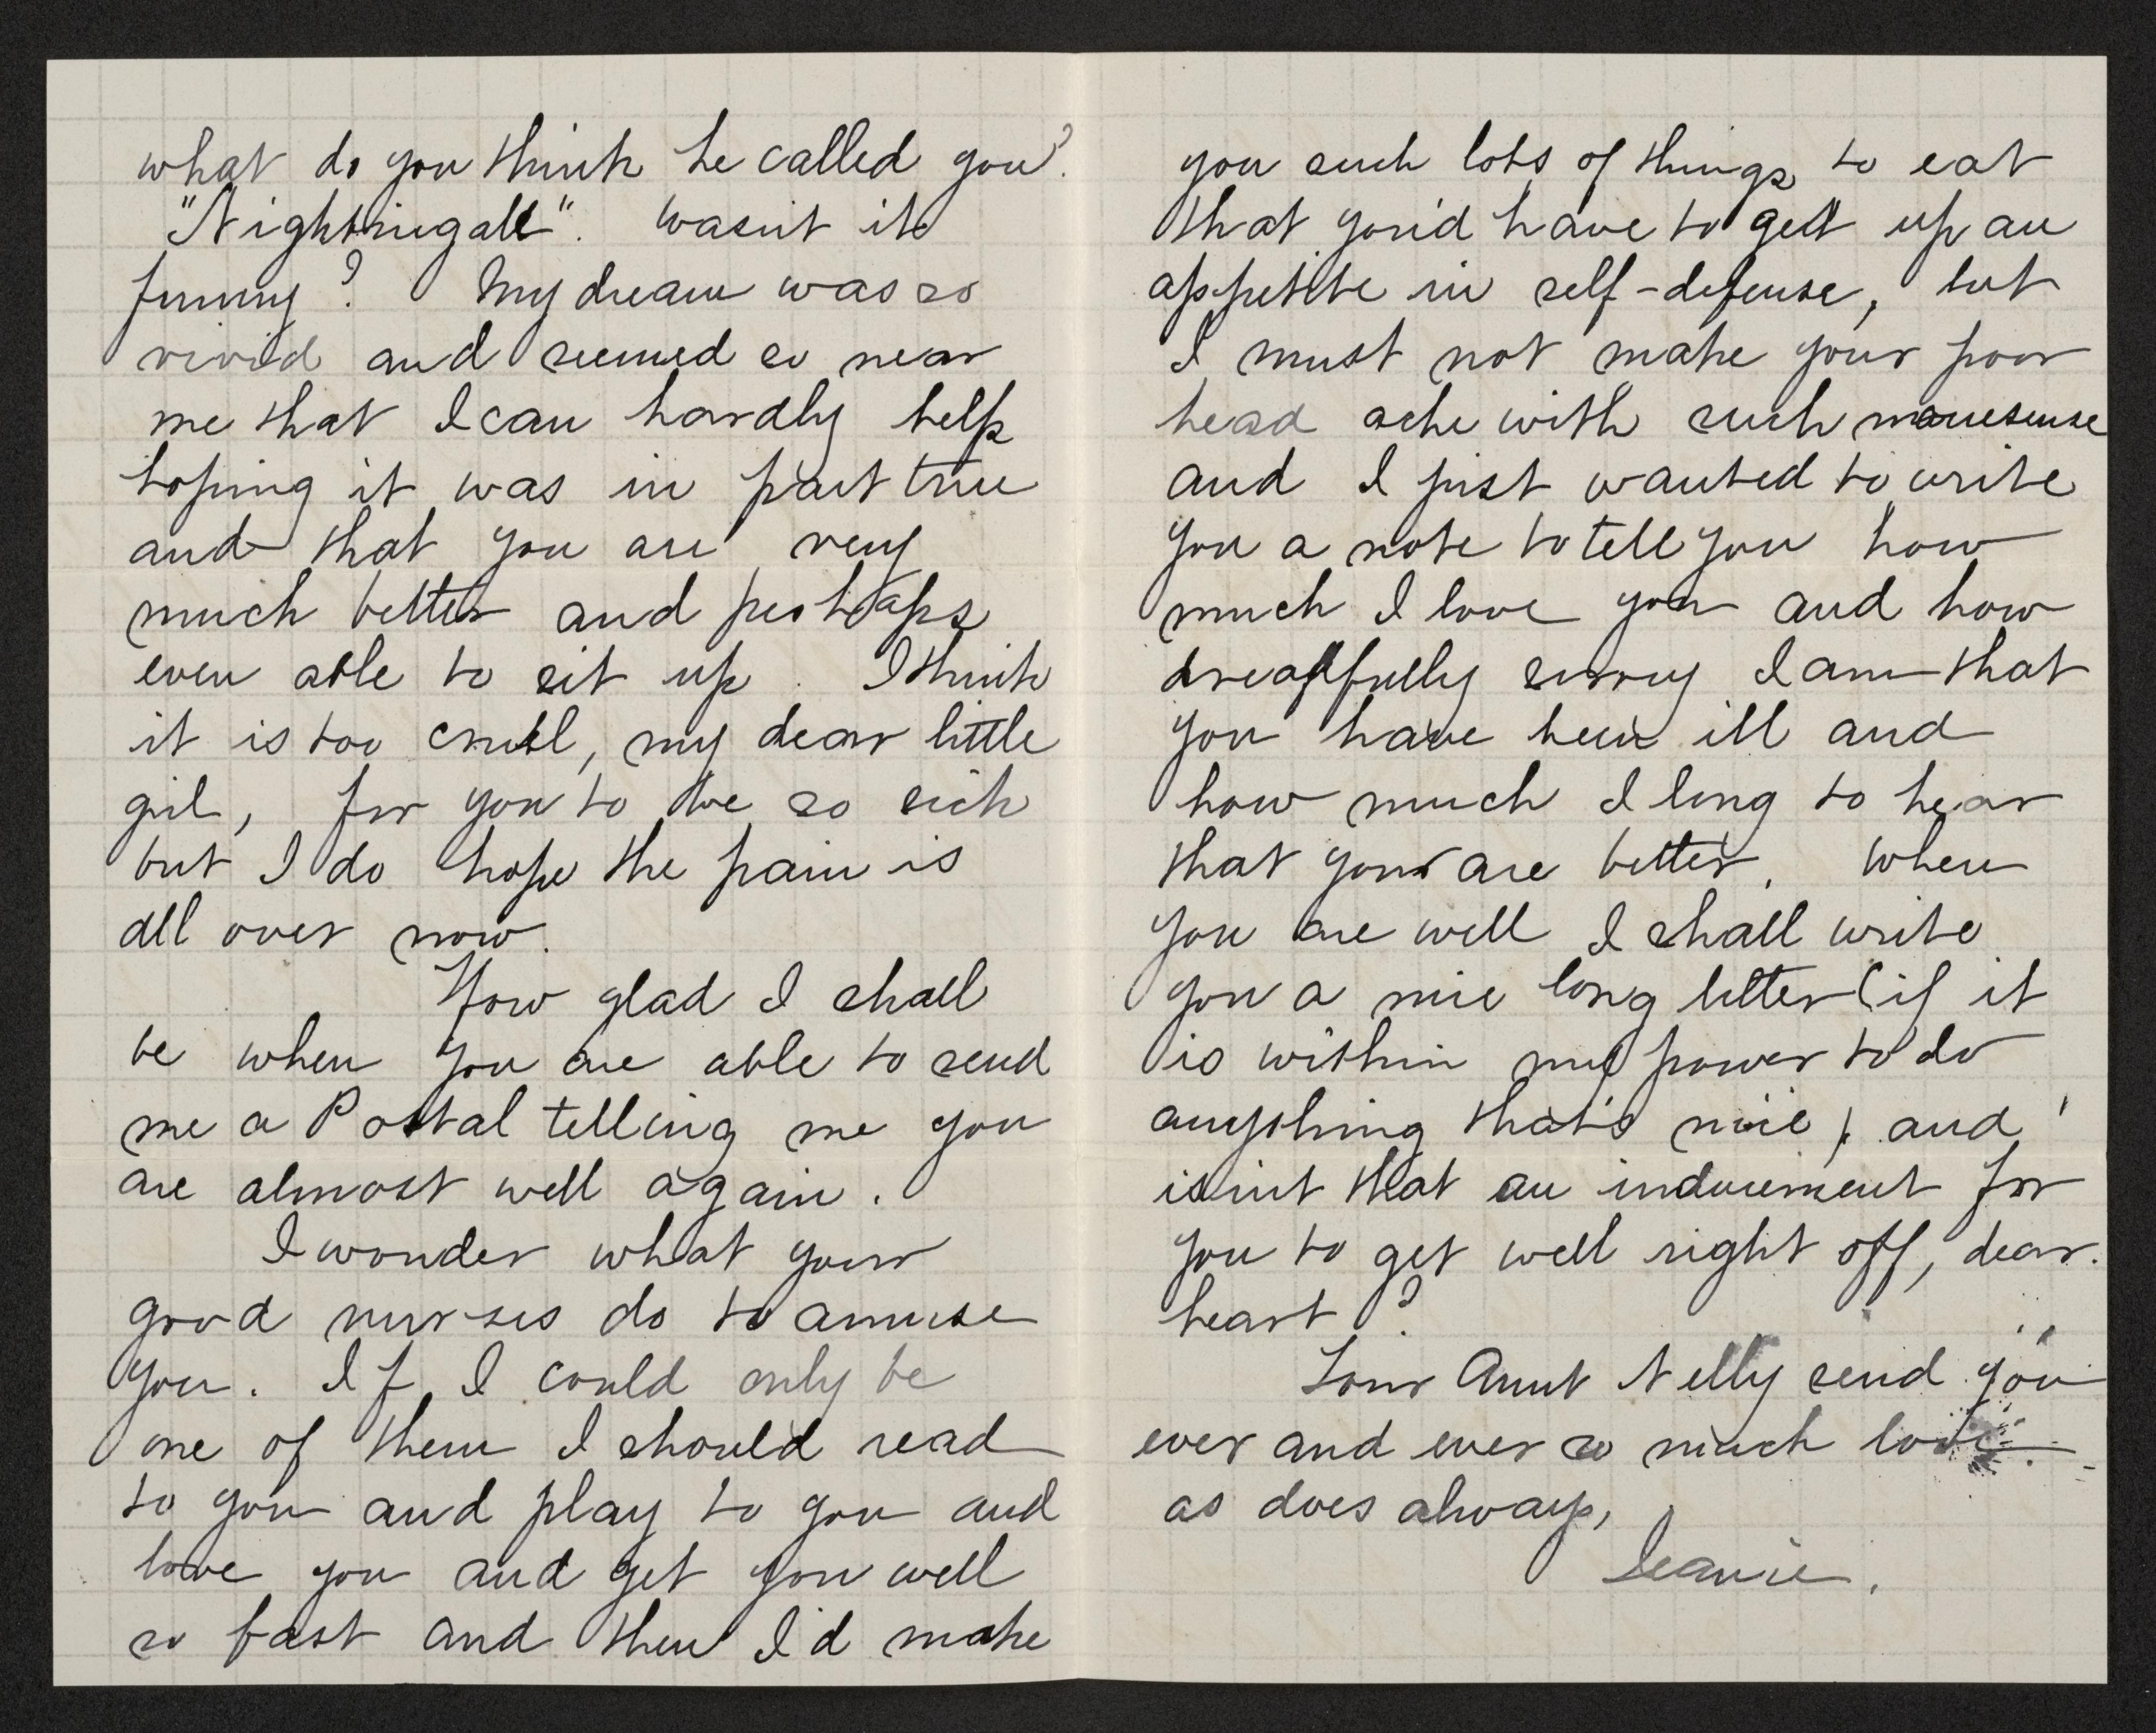 what do you think he called you?
"Nightingale". Wasn't it
funny? My dream was so
vivid and seemed so near
me that I can hardly help
hoping it was in part true
and that you are very
much better and perhaps
even able to sit up. I think
it is too cruel, my dear little
girl, for you to be so sick
but I do hope the pain is
all over now.
How glad I shall
be when you are able to send
me a Postal telling me you
are almost well again.
I wonder what your
good nurses do to amuse
you. If I could only be
one of them I should read
to you and play to you and
love you and get you well
so fast and then I'd make
you such lots of things to eat
that you'd have to get up an
appetite in self-defense, but
I must not make your poor
head ache with such nonesense
and I just wanted to write
you a note to tell you how
much I love you and how
dreadfully sorry I am that
you have been ill and
how much I long to hear
that you are better. When
you are well I shall write
you a nice long letter (if it
is within my power to do
anything that's nice) and
isn't that an inducement for
you to get well right off, dear
heart?
Your Aunt Nelly send you
ever and ever so much love
as does always,
Jeanie.